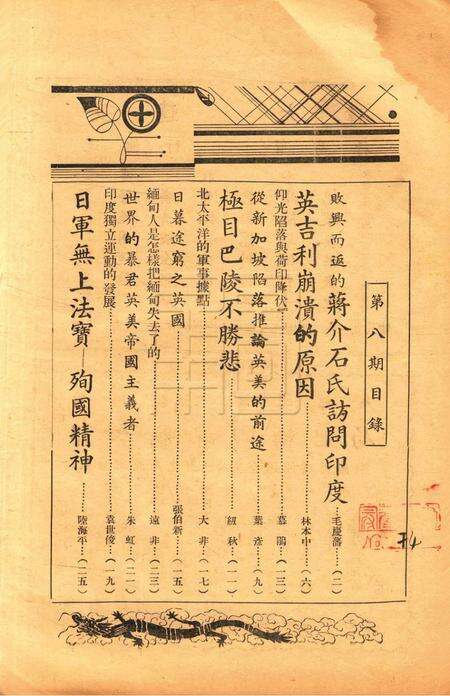 第八期目錄
敗興而返的蔣介石氏訪問印度……毛慶藩(二)
英吉利崩潰的原因……林本中(六)
仰光陷落與荷印降伏……慕鵑(一三)
從新加坡陷落推論英美的前途……葉彥(九)
極目巴陵不勝悲……紐秋(一一)
北太平洋的軍事據點……大非(一七)
日暮途窮之英國……張伯新(一五)
緬甸人是怎樣把緬甸失去了的……遠非(二三)
世界的暴君英美帝國主義者……朱虹(二一)
印度獨立運動的發展……袁世俊(一九)
日軍無上法寶—殉國精神……陸海平(二五)